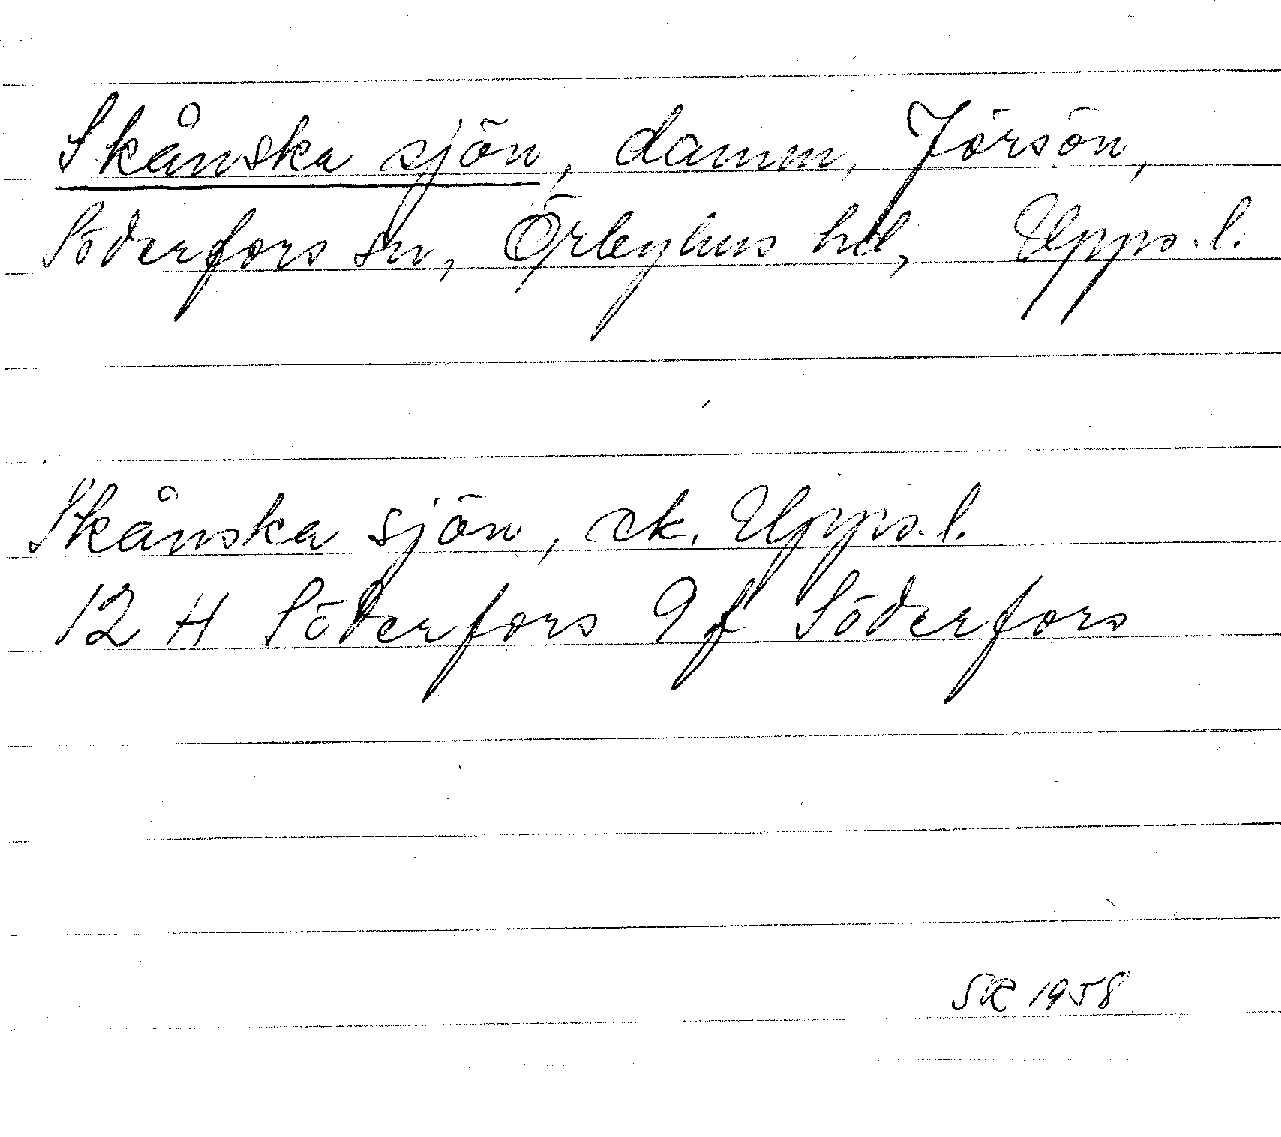 Skånska sjön, damm, Jörsön,
Söderfors sn, Örbyhus hd, Upps.l.
Skånska sjön, ek. Upps.l.
12 H Söderfors 9f Söderfors
SR 1958